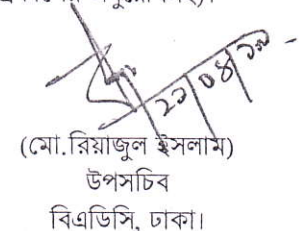 ২১/০৪/১৯
(মো.রিয়াজুল ইসলাম)
উপসচিব
বিএডিসি, ঢাকা।